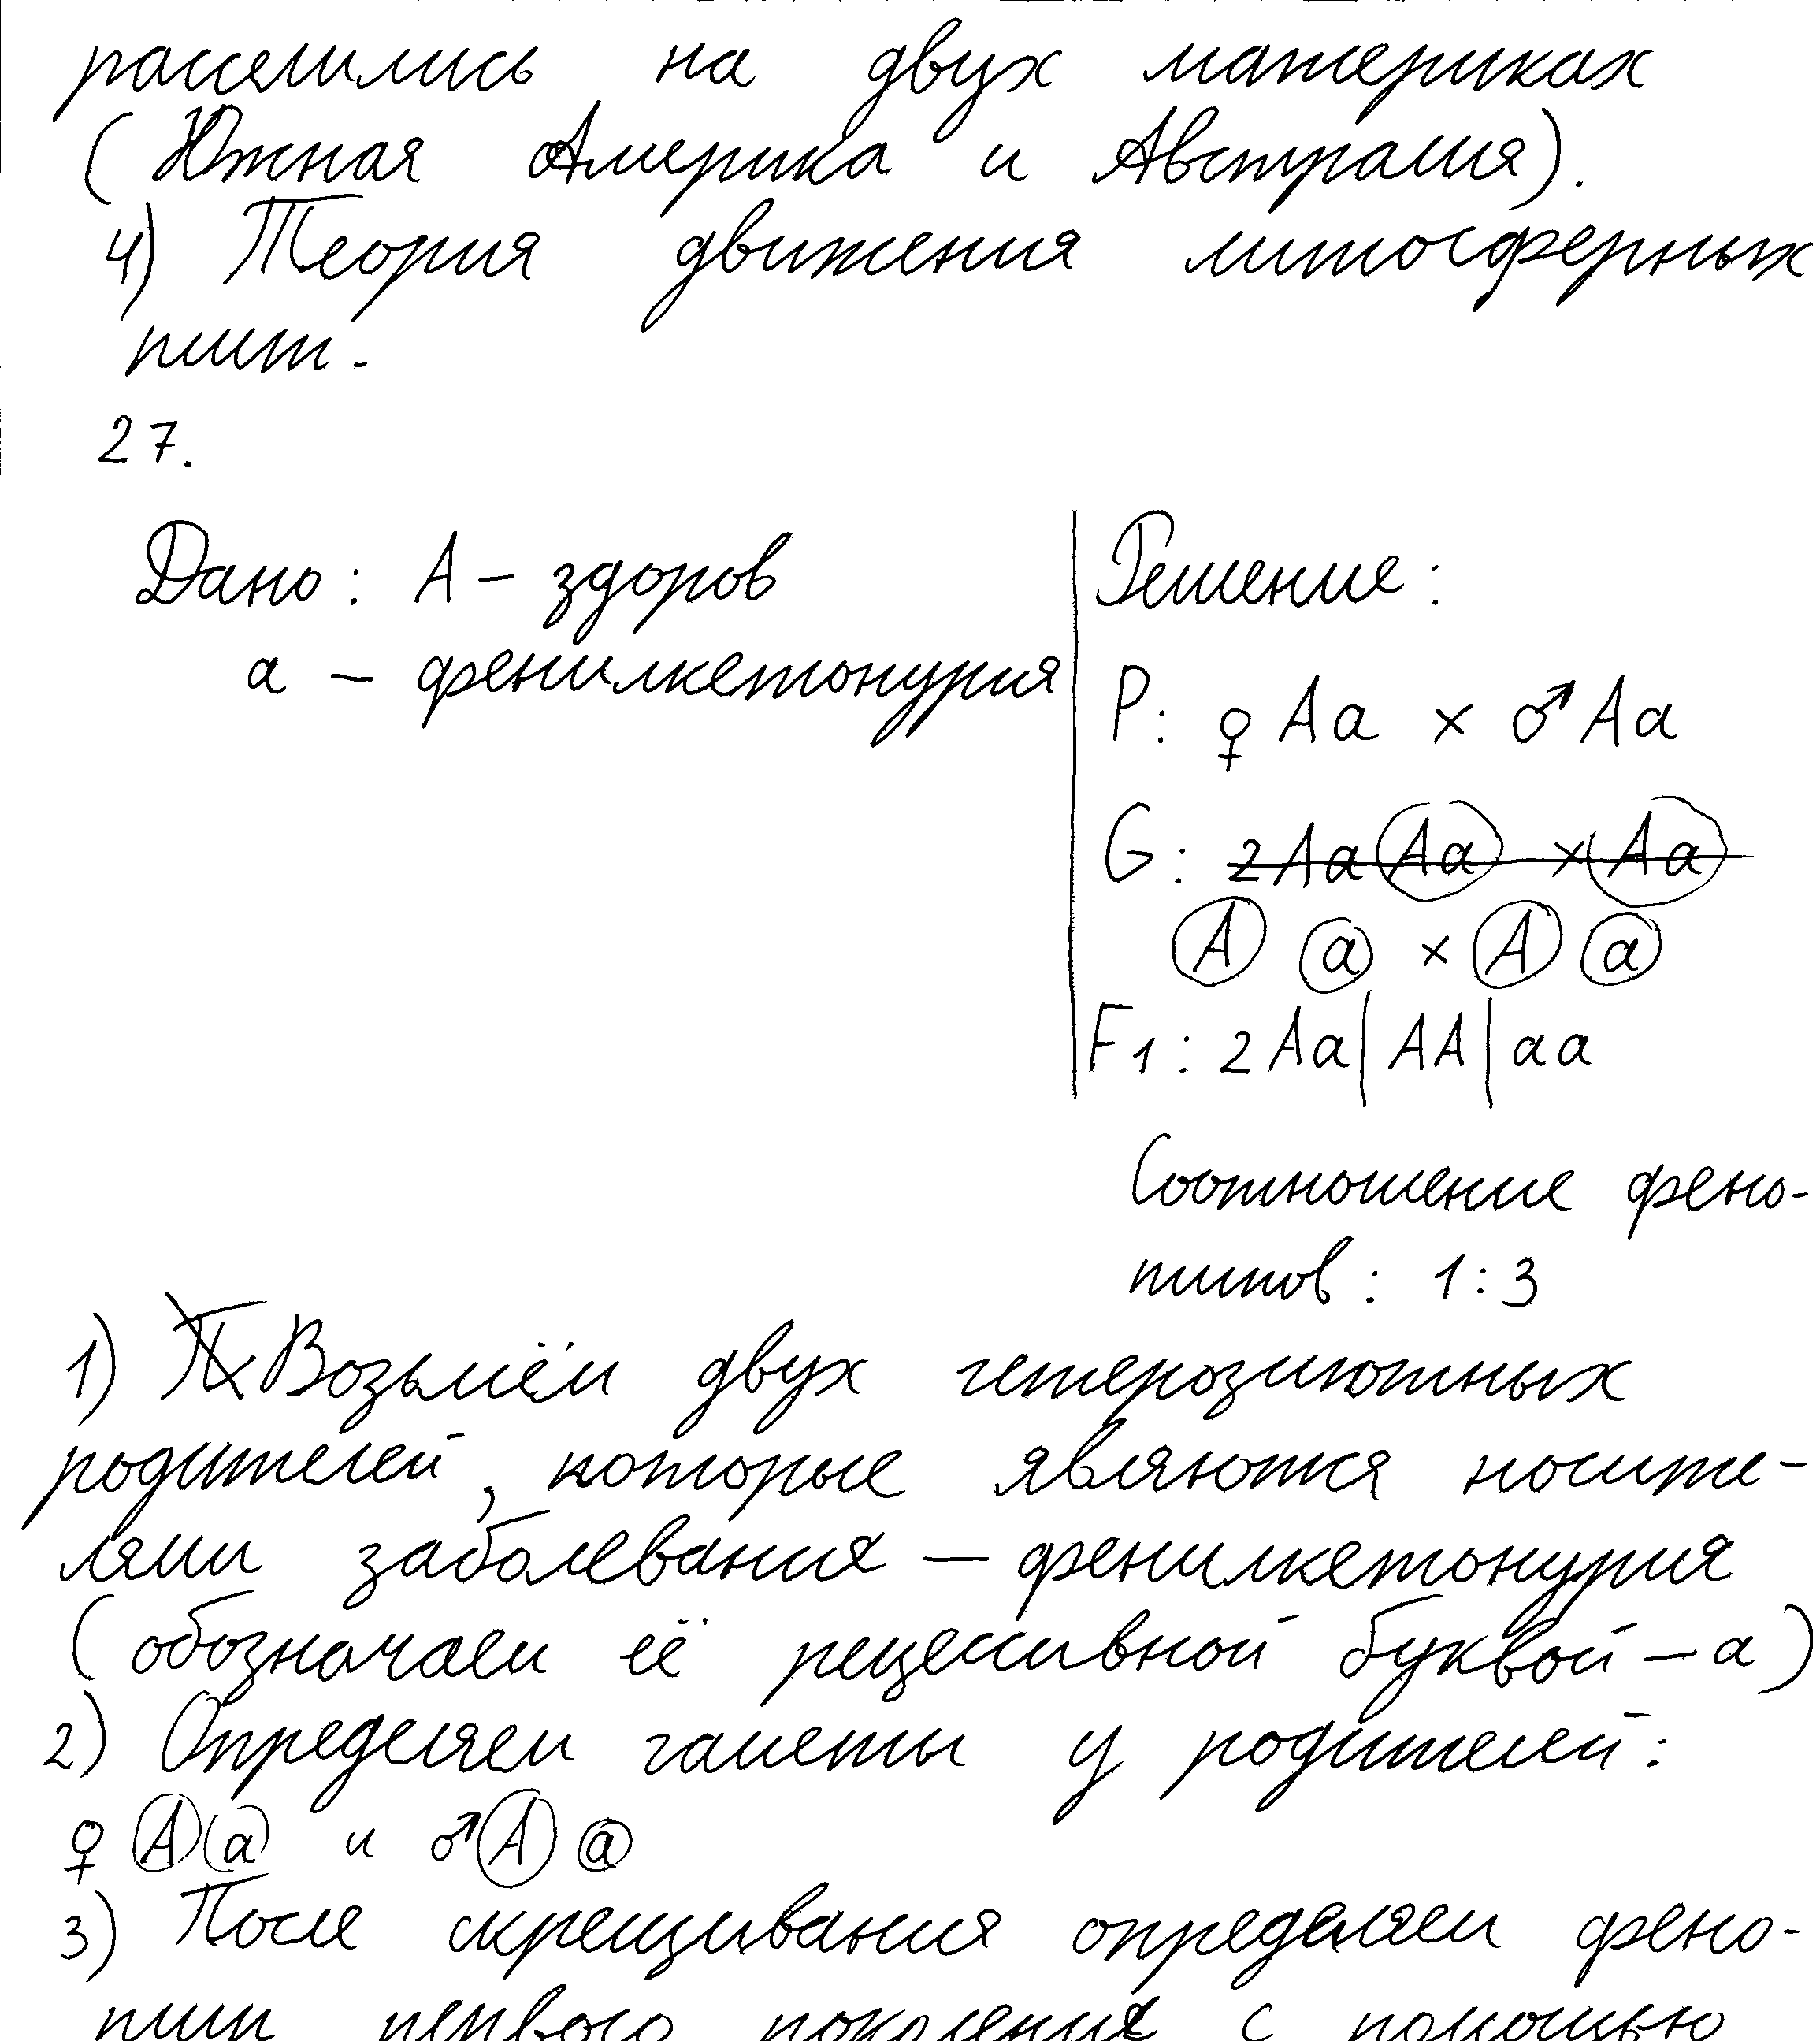 расселились на двух материках
(Южная Америка и Австралия).
4) Теория движения литосферных
плит.
27.
Дано: А – здоров
а – фенилкетонурия
Решение:
P: ♀ Aa × ♂ Aa
G: 2 Aa Aa × Aa
A a × A a
F1: 2 Aa | AA | aa
Соотношение фено-
типов: 1:3
1) П Возьмём двух гетерозиготных
родителей, которые являются носите-
лями заболевания – фенилкетонурия
(обозначаем её рецессивной буквой – а)
2) Определяем гаметы у родителей:
♀ A a и ♂ A a
3) После скрещивания определяем фено-
тип первого поколения с помощью